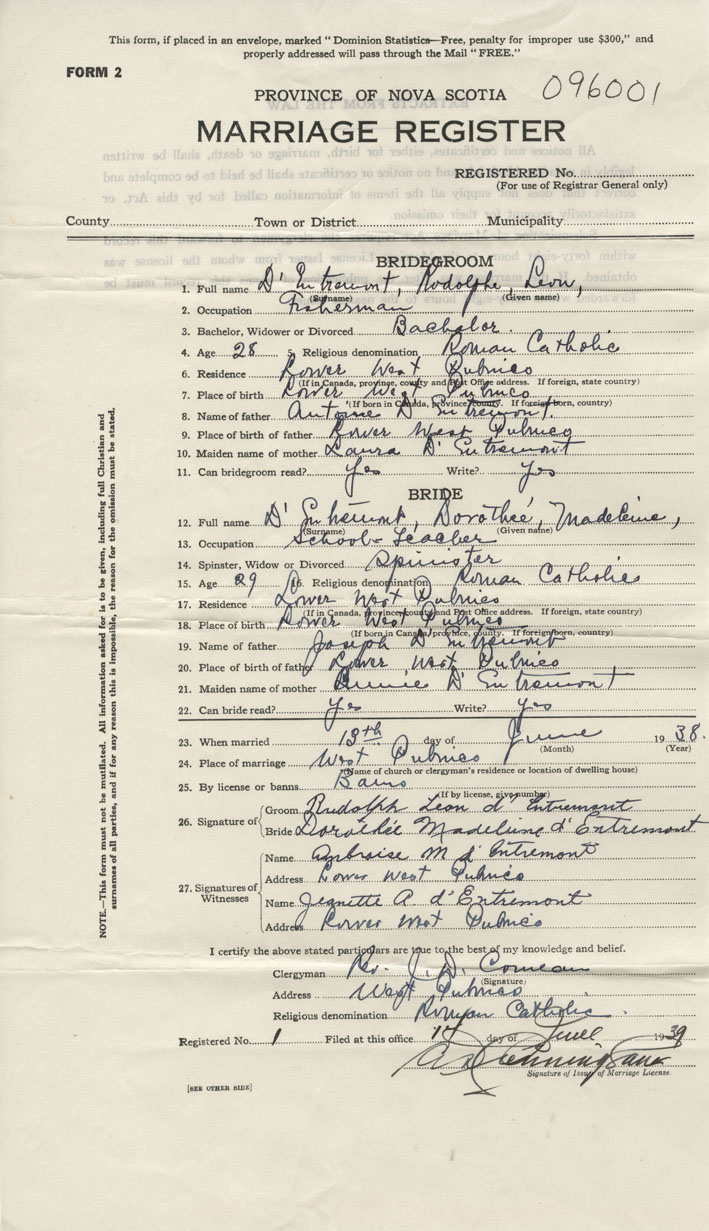 This form, if placed in an envelope, marked "Dominion Statistics—Free, penalty for improper use $300," and
properly addressed will pass through the Mail "FREE."
FORM 2
PROVINCE OF NOVA SCOTIA 096001
MARRIAGE REGISTER
REGISTERED No.
(For use of Registrar General only)
County Town or District Municipality
BRIDEGROOM
1. Full name D'Entremont, Rodolphe, Leon,
(Surname) (Given name)
2. Occupation Fisherman
3. Bachelor, Widower or Divorced Bachelor.
4. Age 28 5. Religious denomination Roman Catholic
6. Residence Lower West Pubnico
(If in Canada, province, county and Post Office address. If foreign, state country)
7. Place of birth Lower West Pubnico
(If born in Canada, province, county. If foreign born, country)
8. Name of father Antoine D'Entremont.
9. Place of birth of father Lower West Pubnico
10. Maiden name of mother Laura D'Entremont
11. Can bridegroom read? Yes Write? Yes
BRIDE
12. Full name D'Entremont, Dorothée, Madeleine,
(Surname) (Given name)
13. Occupation School-Teacher
14. Spinster, Widow or Divorced Spinster
15. Age 29 16. Religious denomination Roman Catholic
17. Residence Lower West Pubnico
(If in Canada, province, county and Post Office address. If foreign, state country)
18. Place of birth Lower West Pubnico
(If born in Canada, province, county. If foreign born, country)
19. Name of father Joseph D'Entremont
20. Place of birth of father Lower West Pubnico
21. Maiden name of mother Annie D'Entremont
22. Can bride read? Yes Write? Yes
23. When married 13th day of June 1938.
(Month) (Year)
24. Place of marriage West Pubnico
(Name of church or clergyman's residence or location of dwelling house)
25. By license or banns Bans
(If by license, give number)
26. Signature of
Groom Rudolph Leon d'Entremont
Bride Dorothée Madeleine d'Entremont
27. Signatures of Witnesses
Name Ambroise M d'Entremont
Address Lower West Pubnico
Name Jeanette A. d'Entremont
Address Lower West Pubnico
I certify the above stated particulars are true to the best of my knowledge and belief.
Clergyman Rev. J. D. Comeau
(Signature)
Address West Pubnico
Religious denomination Roman Catholic.
Registered No. 1 Filed at this office day of June 1939
Signature of Issuer of Marriage License
[SEE OTHER SIDE]
NOTE.—This form must not be mutilated. All information asked for is to be given, including full Christian and
surnames of all parties, and if for any reason this is impossible, the reason for the omission must be stated.